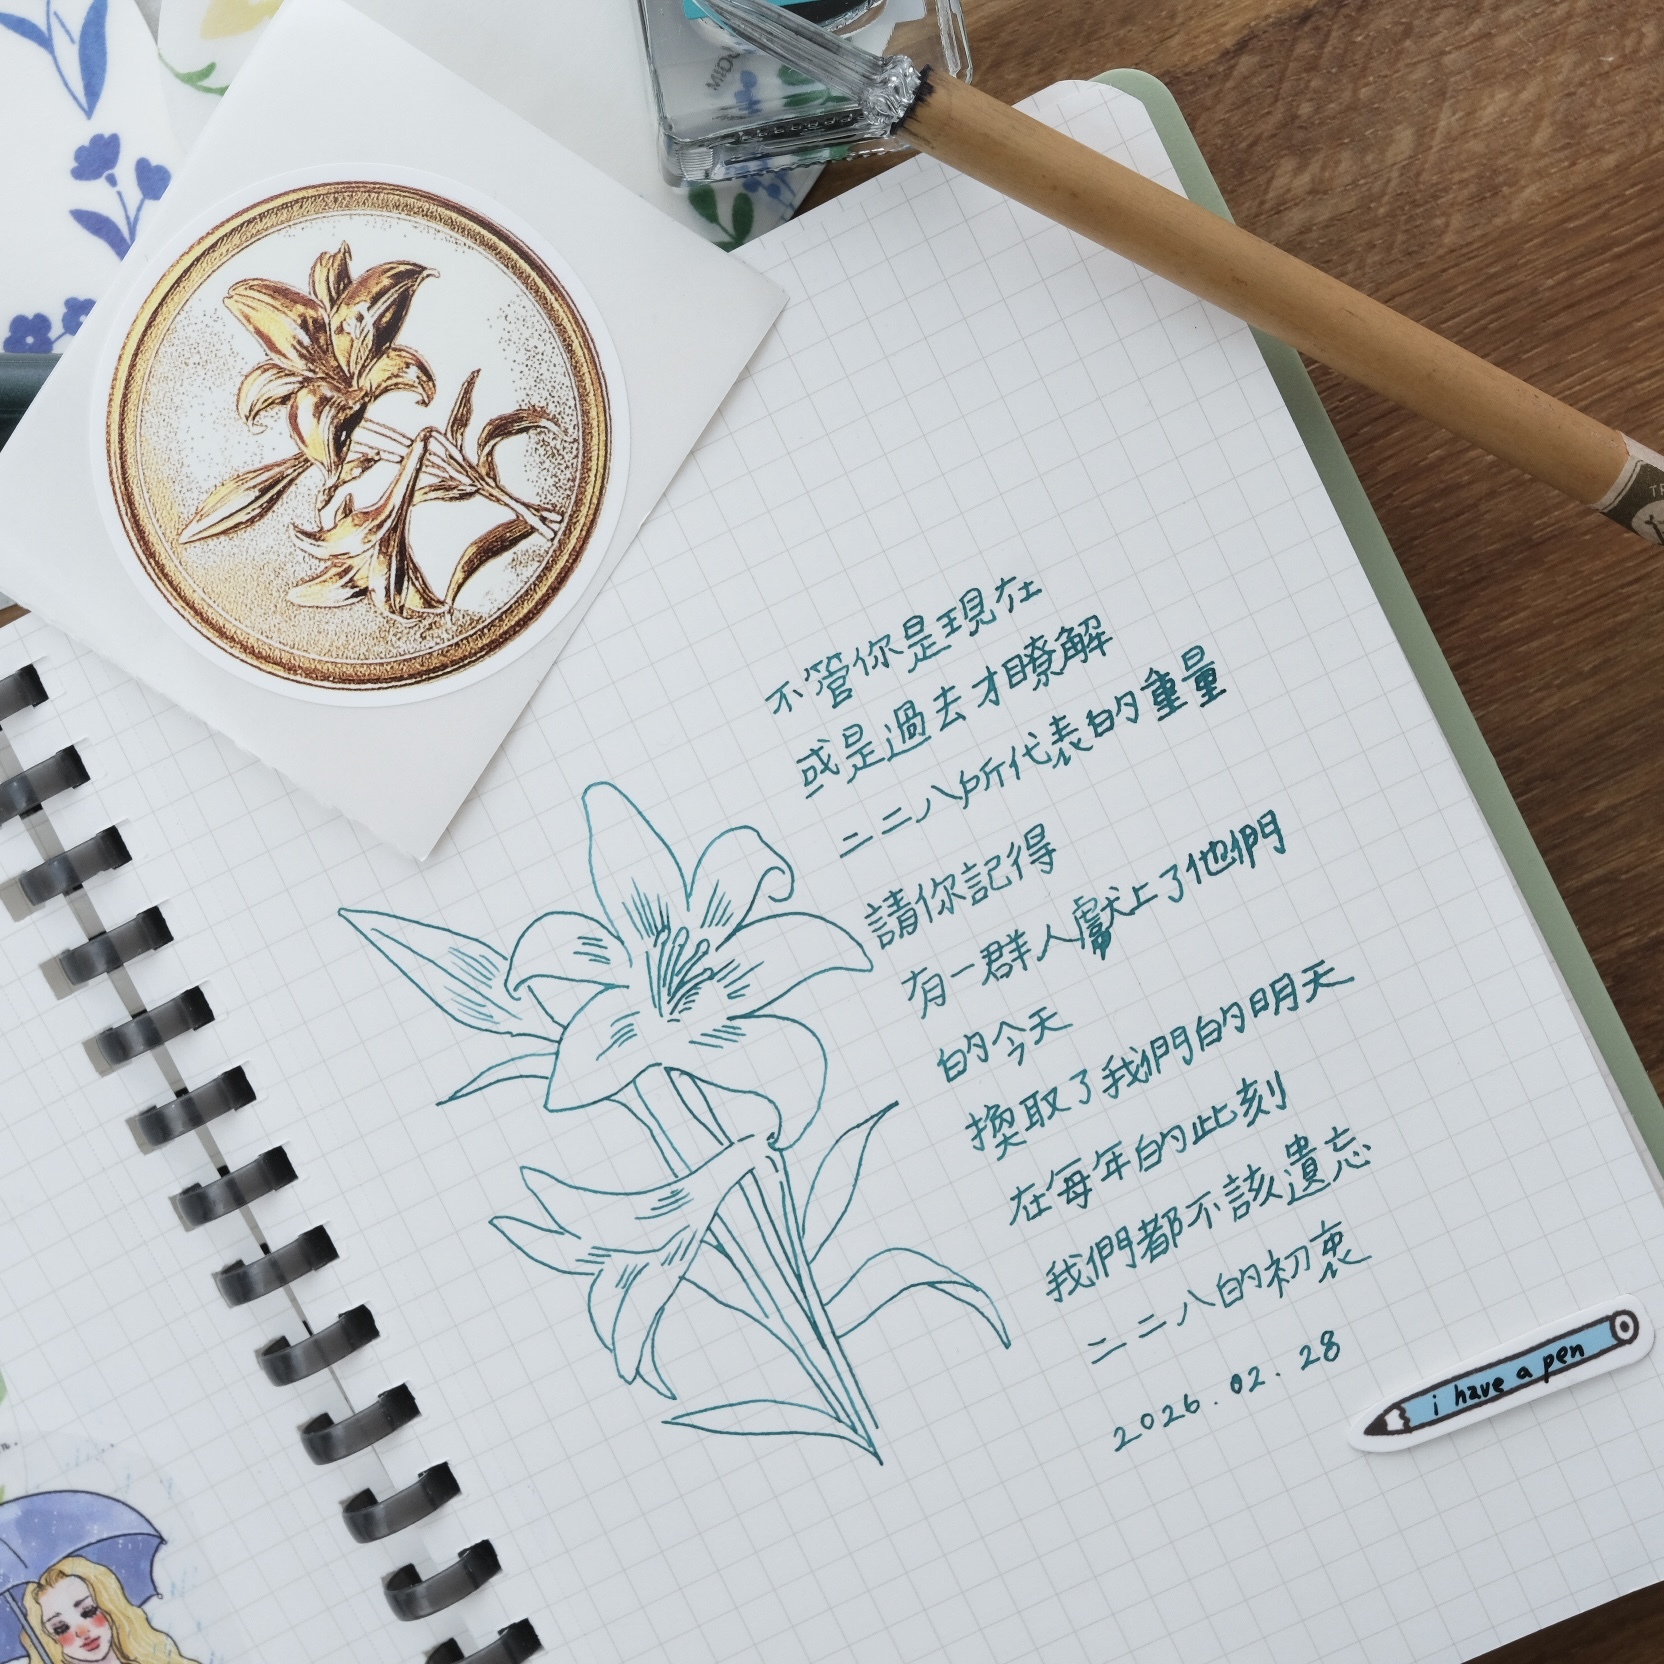 MIDO
不管你是現在
或是過去才瞭解
二二八所代表的重量
請你記得
有一群人獻上了他們
的今天
換取了我們的明天
在每年的此刻
我們都不該遺忘
二二八的初衷
2026.02.28
i have a pen